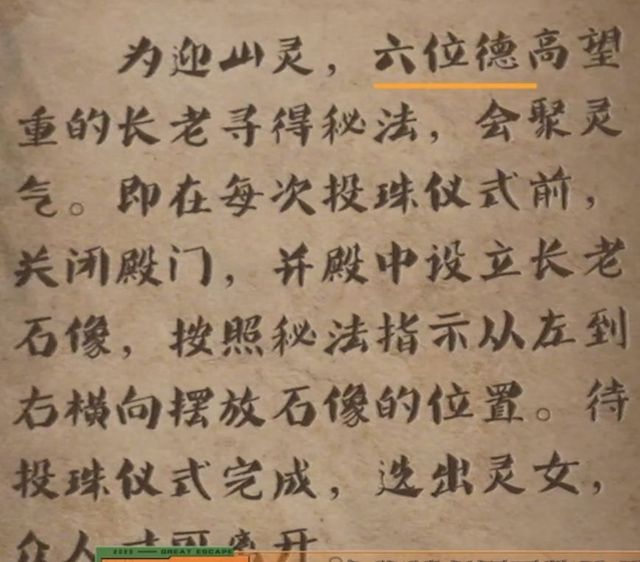 为迎山灵，六位德高望
重的长老寻得秘法，会聚灵
气。即在每次投珠仪式前，
关闭殿门，并殿中设立长老
石像，按照秘法指示从左到
右横向摆放石像的位置。待
投珠仪式完成，选出灵女，
众人才可离开
GREAT ESCAPE